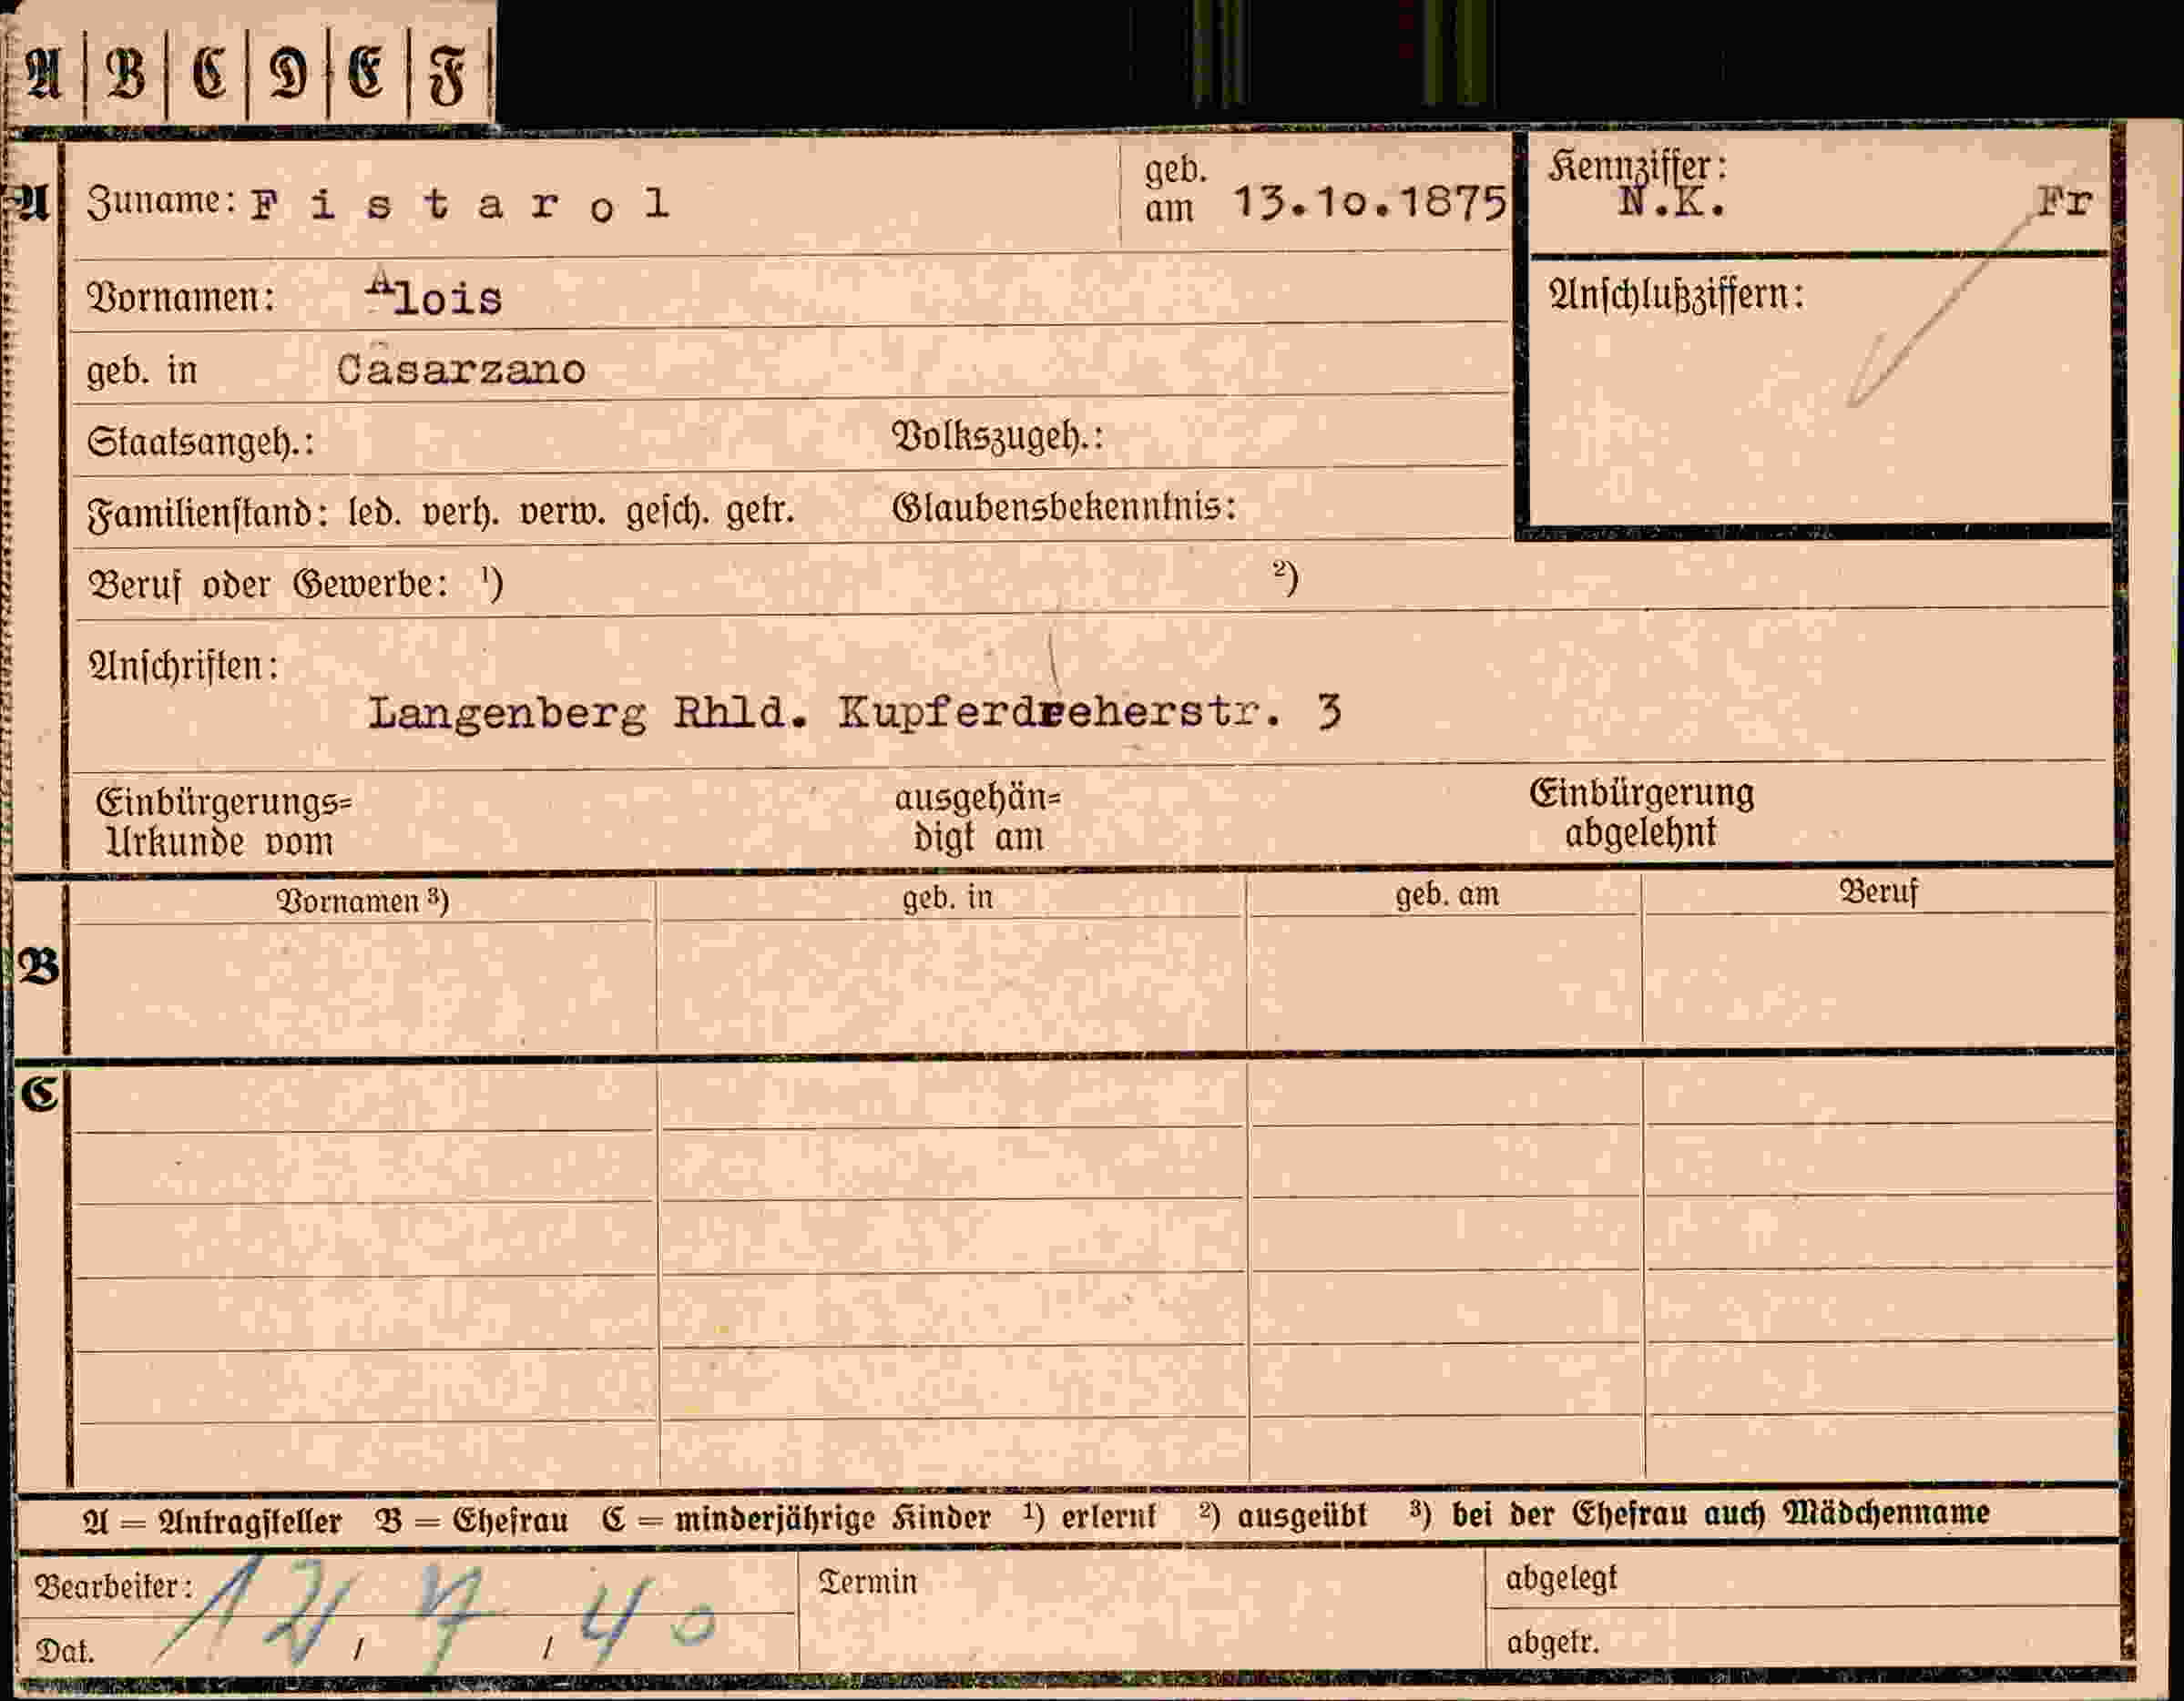 A | B | C | D | E | F |
A Zuname: Fistarol geb. am 13.10.1875 Kennziffer: N.K. Fr
Vornamen: Alois Anschlußziffern:
geb. in Casarzano
Staatsangeh.: Volkszugeh.:
Familienstand: led. verh. verw. gesch. getr. Glaubensbekenntnis:
Beruf oder Gewerbe: ¹) ²)
Anschriften:
Langenberg Rhld. Kupferdreherstr. 3
Einbürgerungs= ausgehän= Einbürgerung
Urkunde vom digt am abgelehnt
Vornamen ³) geb. in geb. am Beruf
B
C
A = Antragsteller B = Ehefrau C = minderjährige Kinder ¹) erlernt ²) ausgeübt ³) bei der Ehefrau auch Mädchenname
Bearbeiter: Termin abgelegt
Dat. 12 / 7 / 40 abgetr.